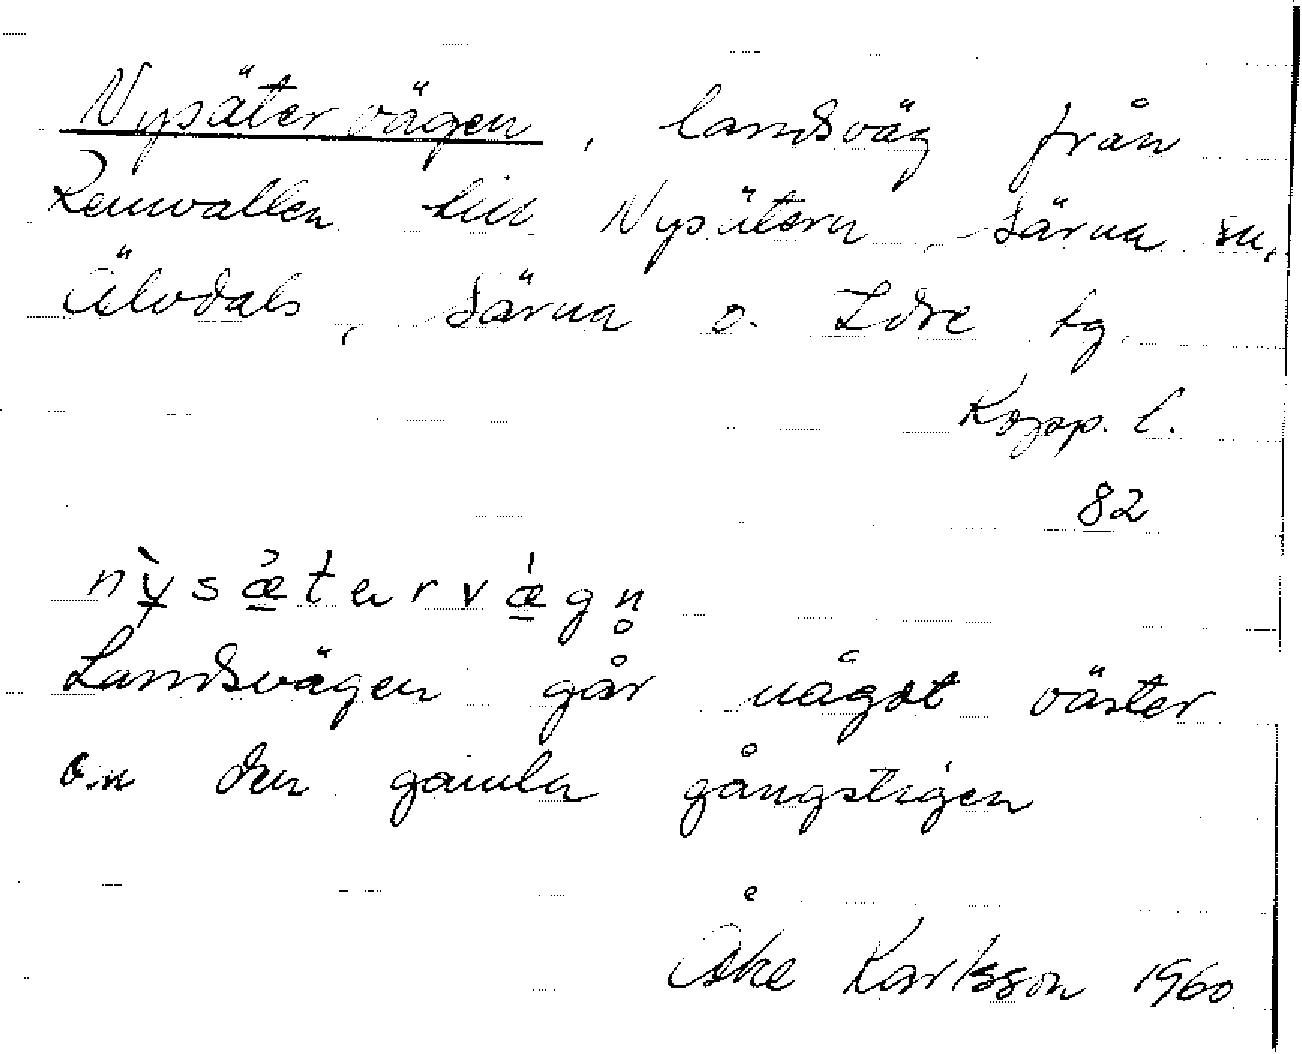 Nysätervägen, landsväg från
Renvallen till Nysätern, Särna sn,
Älvdals, Särna o. Idre tg
Kopp. l.
82
nỳsæ̠̀tərvǽ̠gn̥
Landsvägen går något väster
om den gamla gångstigen
Åke Karlsson 1960